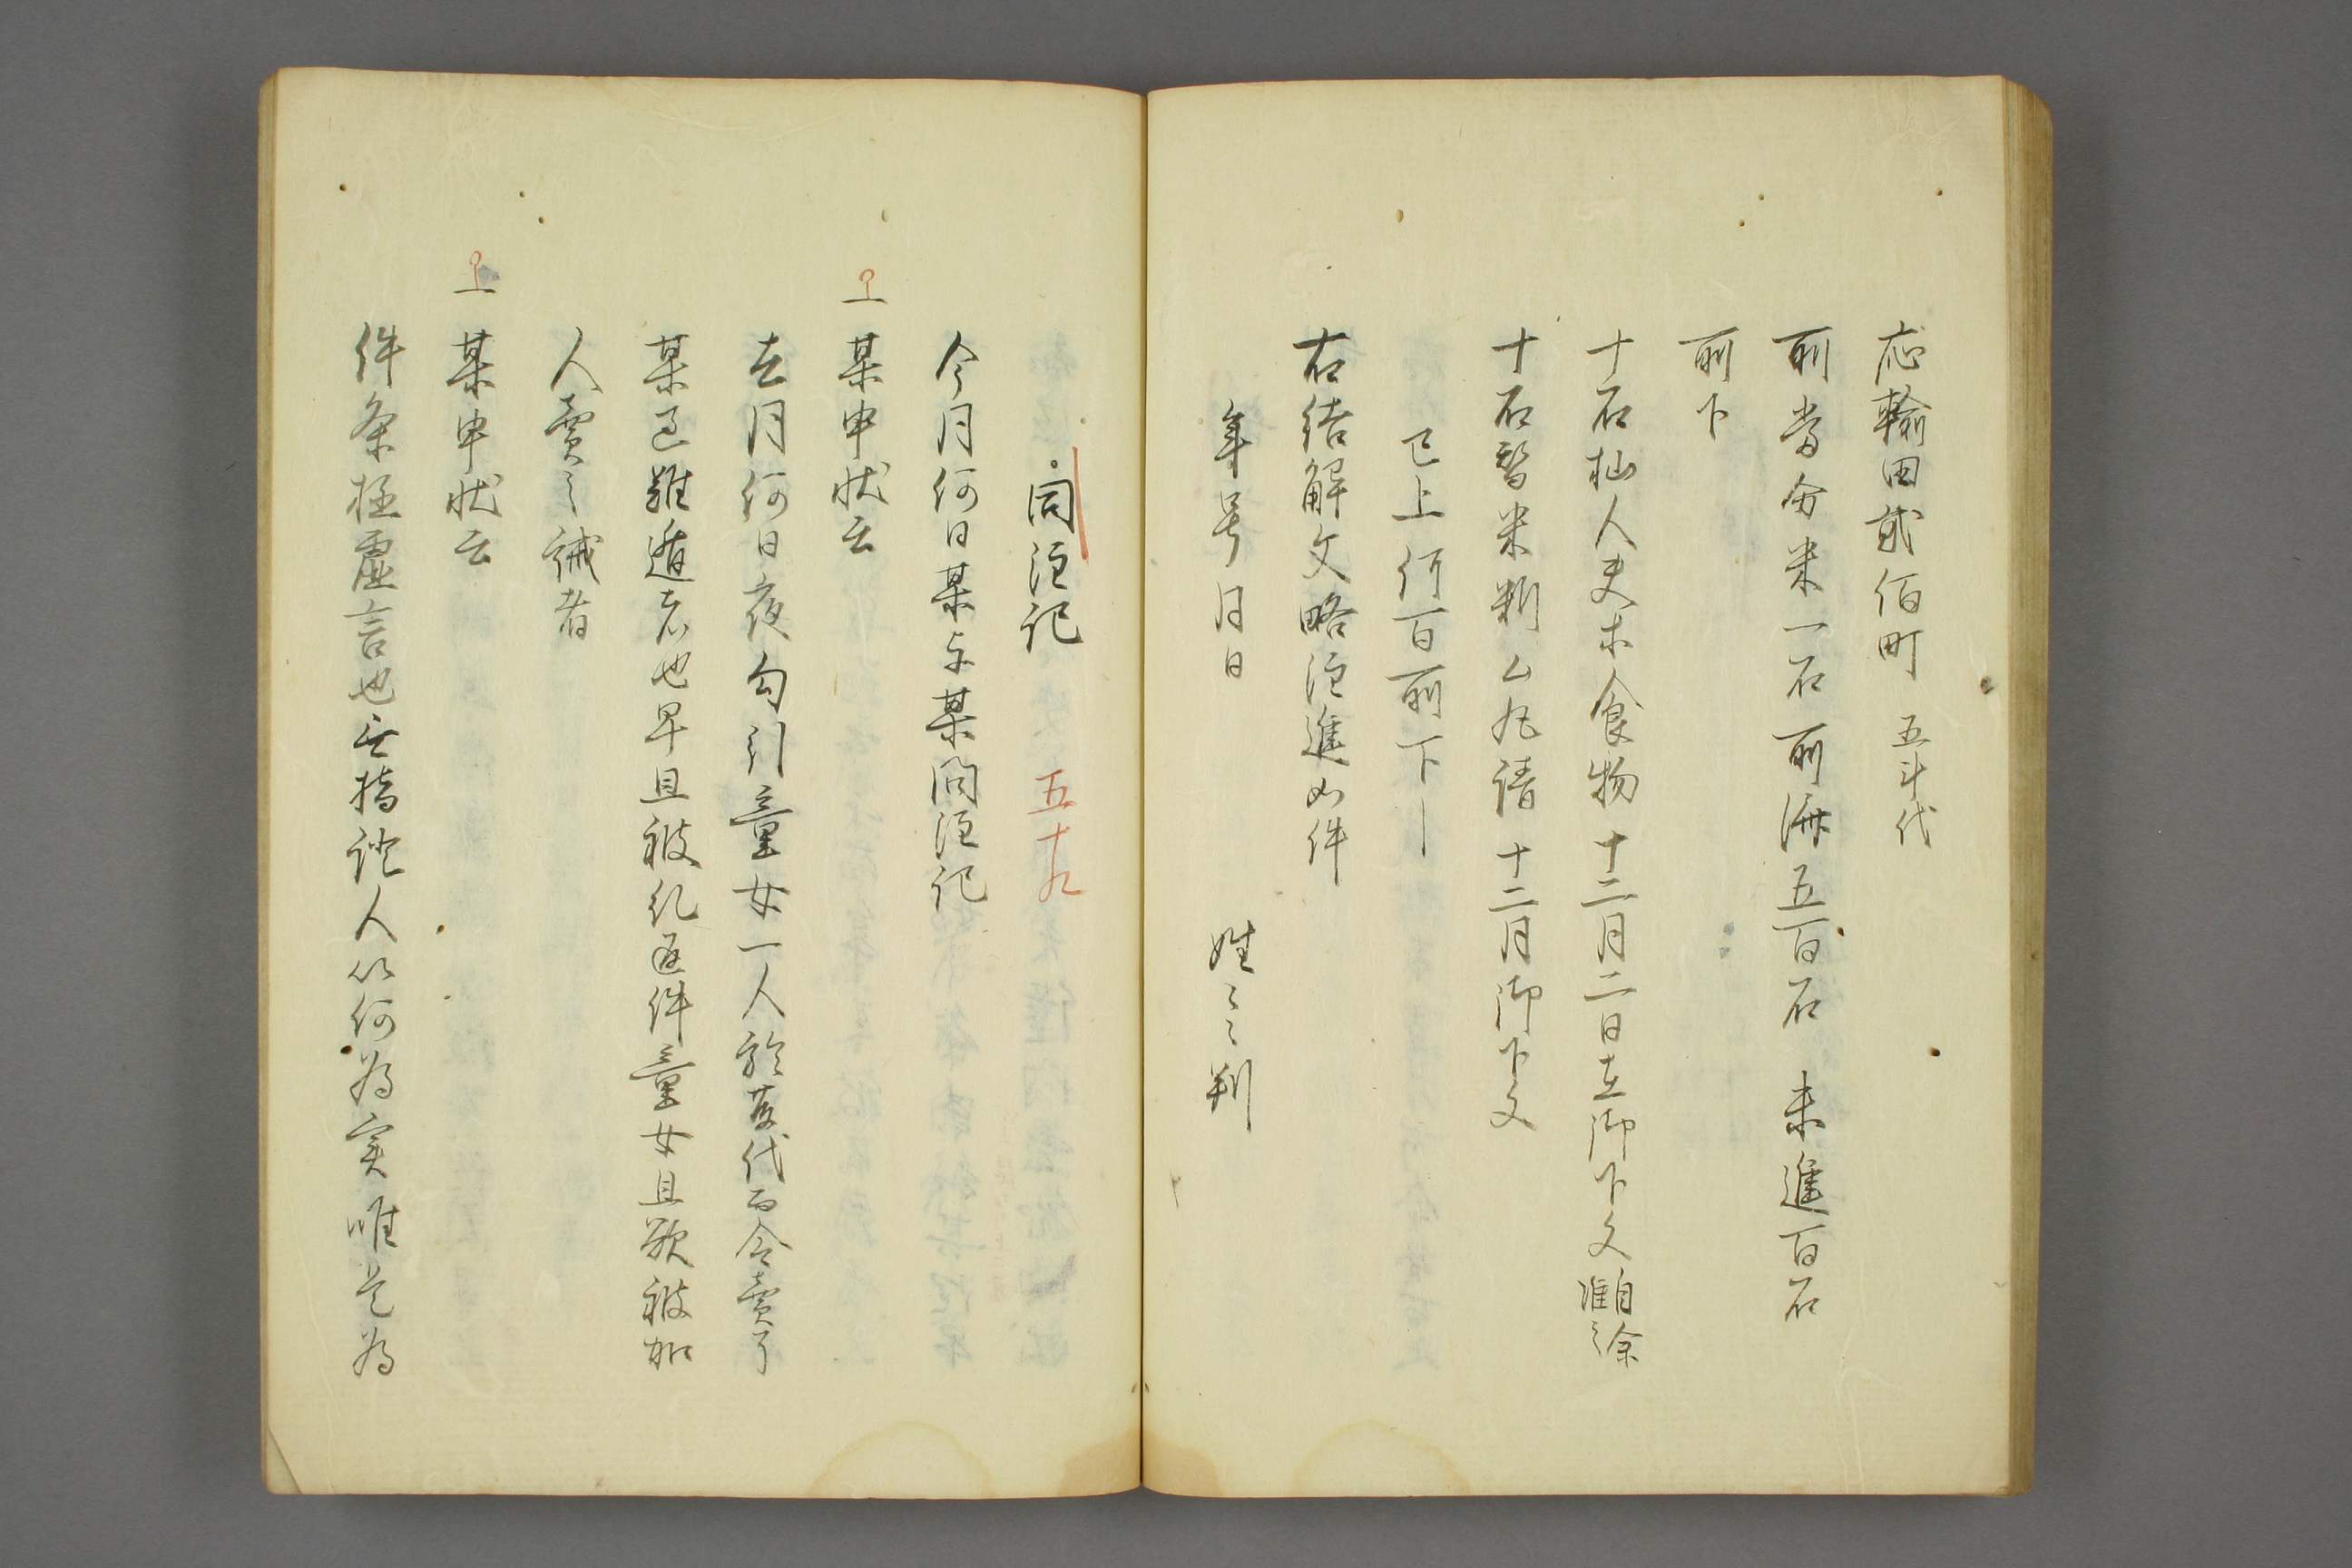 応輸田貳佰町 五斗代
所当分米一石 所済五百石 未進百石
所下
十石杣人夫等食物十二月二日在御下文 自余准之
十石蟄米料 ム丸請 十二月日御下文
已上何百所下
右結解文略注進如件
年号月日 姓〻〻判
問注記 五十九
今月何日某与某問注記
一 某申状云
去月何日夜勾引童女一人於其代而令賣了
某已難遁者也早且被糺返件童女且欲被加
人賣之誡者
一 某申状云
件条極虚言也無指證人以何為実唯是為